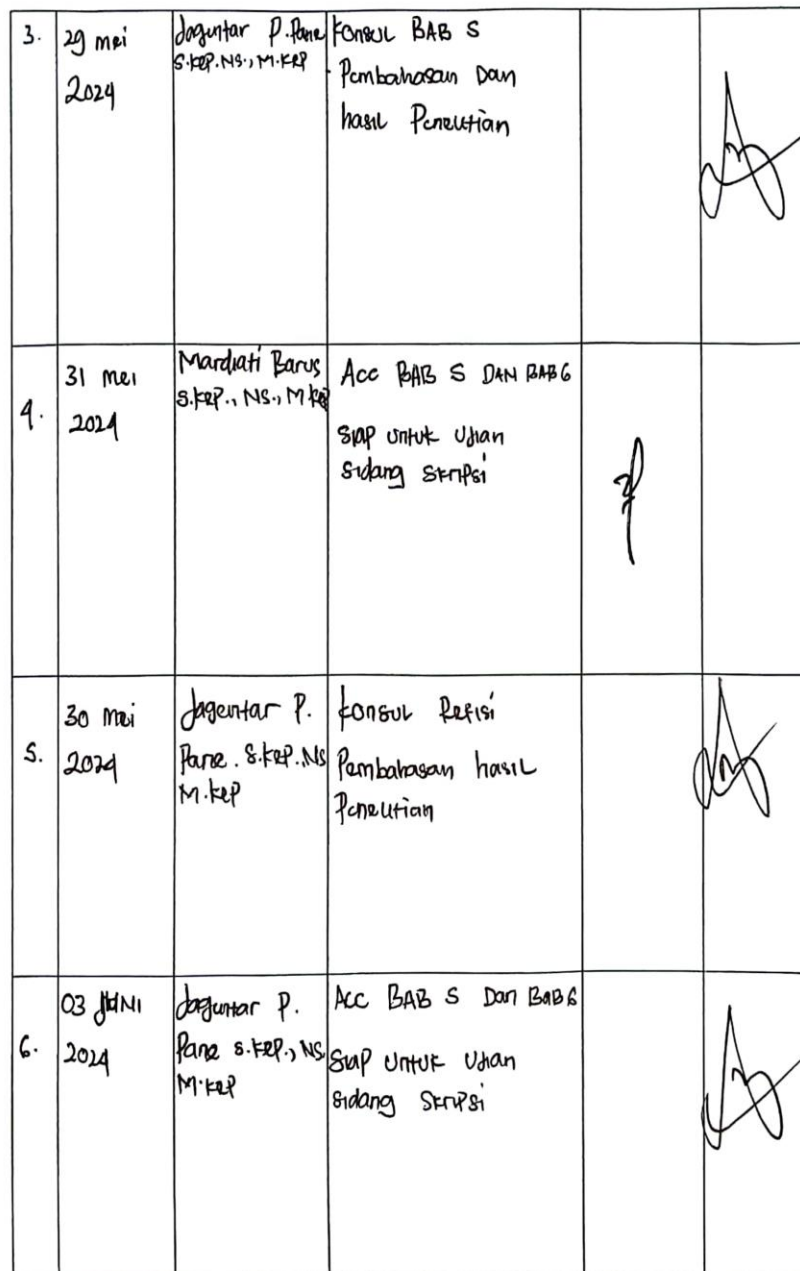 3.
29 mei
2024
Jaguntar P. Pane
S.Kep.Ns., M.Kep
Konsul BAB 5
Pembahasan Dan
hasil Penelitian
4.
31 mei
2024
Mardiati Barus
S.Kep., NS., M.Kep
Acc BAB 5 DAN BAB 6
Siap untuk Ujian
Sidang Skripsi
5.
30 mei
2024
Jagentar P.
Pane. S.Kep.Ns
M.Kep
Konsul Refisi
Pembahasan hasil
Penelitian
6.
03 JUNI
2024
Jaguntar P.
Pane S.Kep., NS.
M.Kep
Acc BAB 5 Dan Bab 6
Siap untuk Ujian
Sidang Skripsi